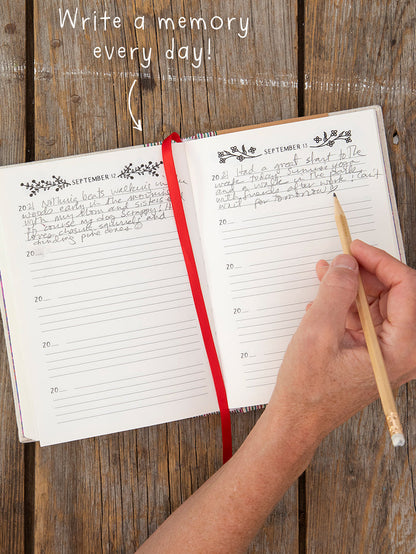 Write a memory
every day!
SEPTEMBER 12
2021 Nothing beats walking in the
woods early in the morning
with my mom and sisters and
of course my dog Scraps! He
loves chasing squirrels and
finding pine cones ☺
20
20
20
20
SEPTEMBER 13
2021 Had a great start to the
week today! Sunrise yoga
and a walk in the park
with friends after work! Can't
wait for tomorrow
20
20
20
20